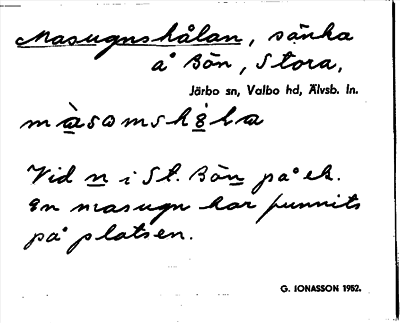 Masugnshålan, sänka
å Bön, Stora,
Järbo sn, Valbo hd, Älvsb. ln.
Vid n i St. Bön på ek.
En masugn har funnits
på platsen.
G. IONASSON 1952.